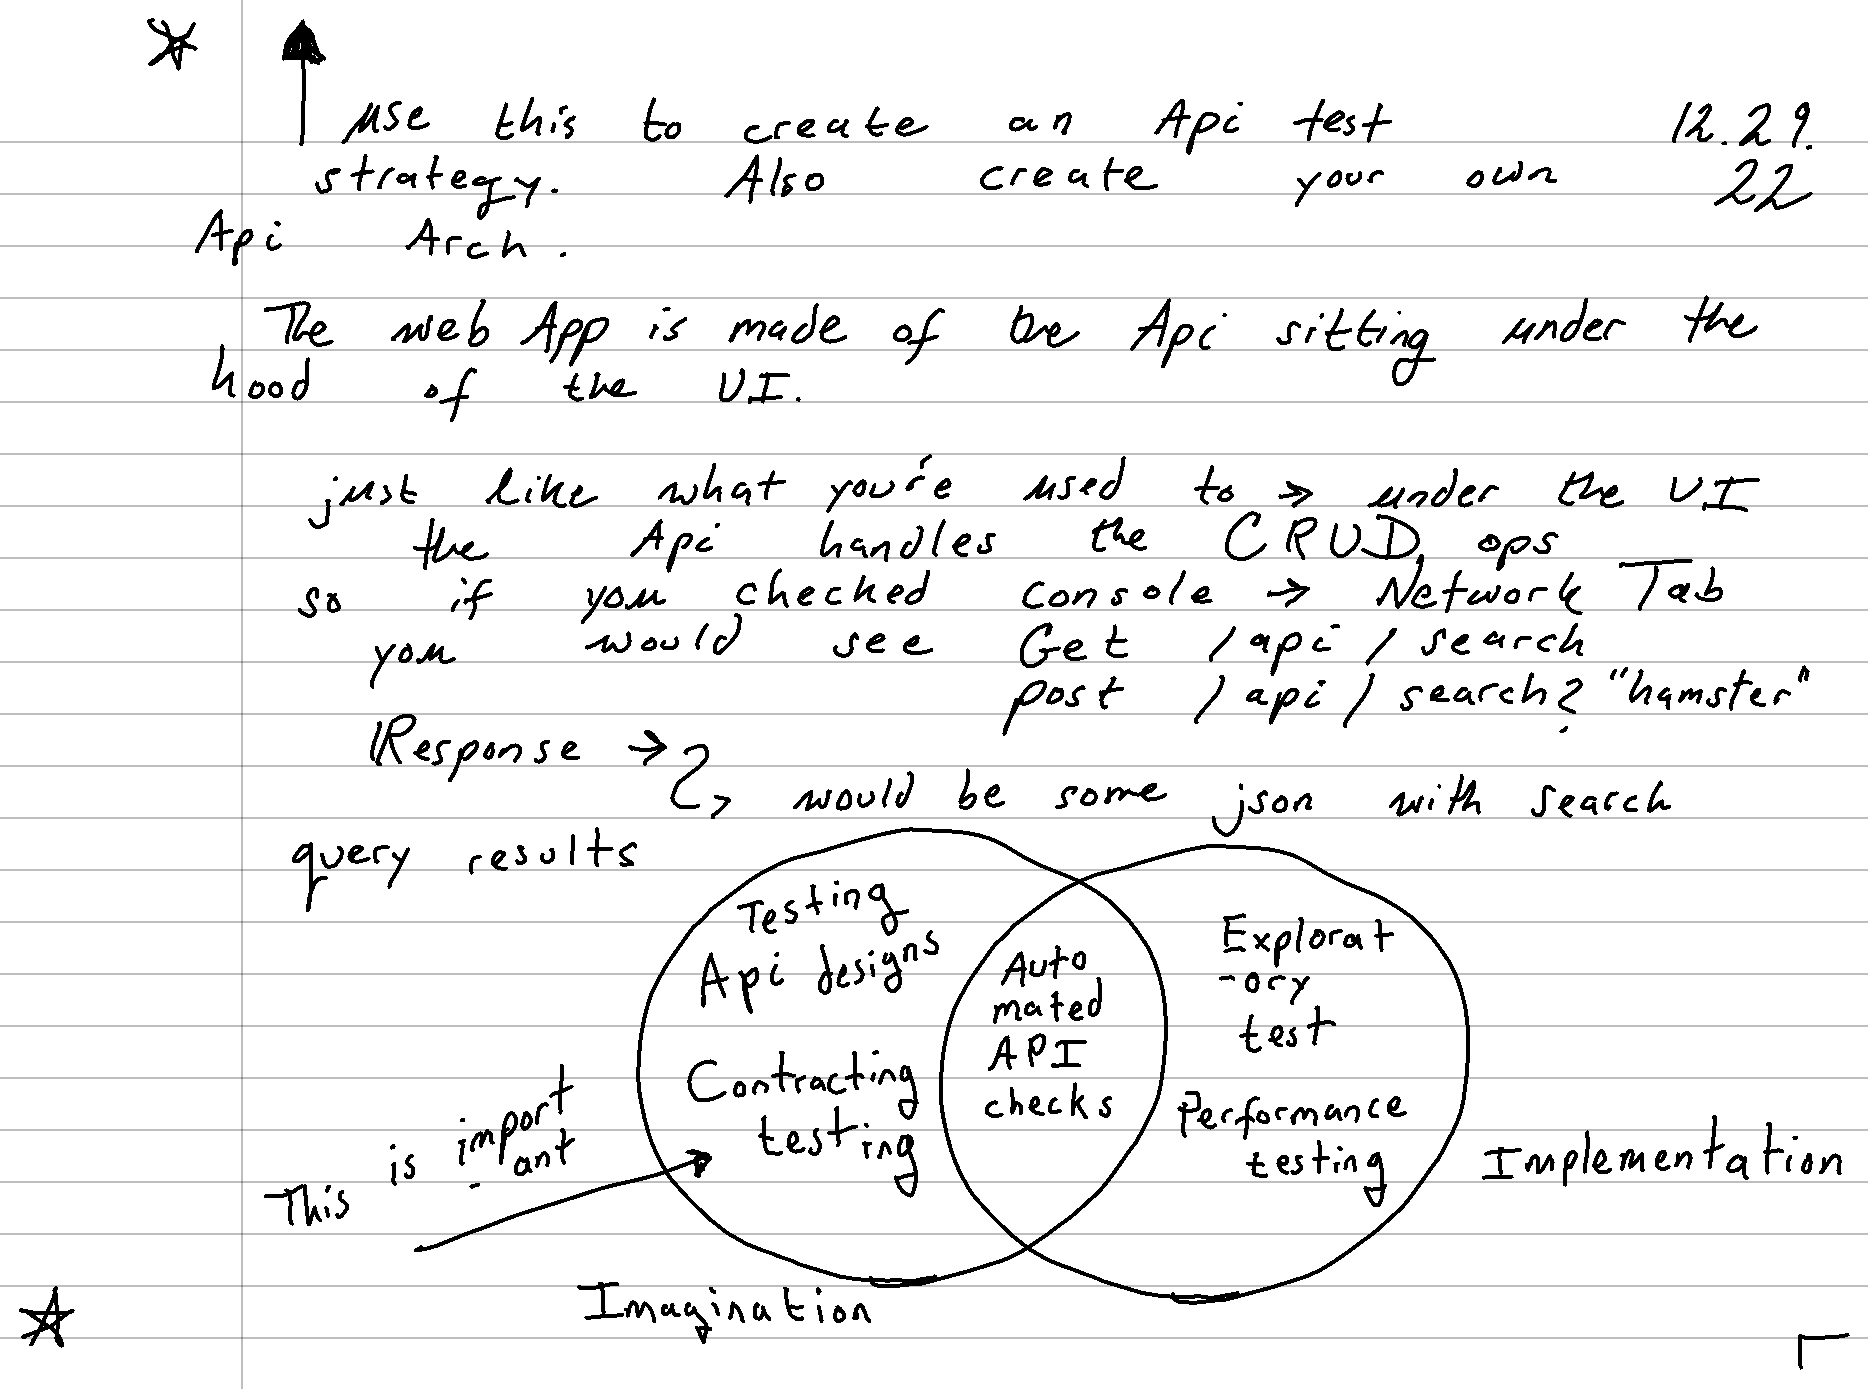 use this to create an Api test 12.29.
strategy. Also create your own 22
Api Arch.
The web App is made of the Api sitting under the
hood of the UI.
just like what you're used to → under the UI
the Api handles the CRUD ops
so if you checked console → Network Tab
you would see Get /api/search
post /api/search? "hamster"
Response →
would be some json with search
query results
Testing
Api designs
Contracting
testing
Auto
mated
API
checks
Explorat
-ory
test
Performance
testing
Implementation
This is import
-ant
Imagination